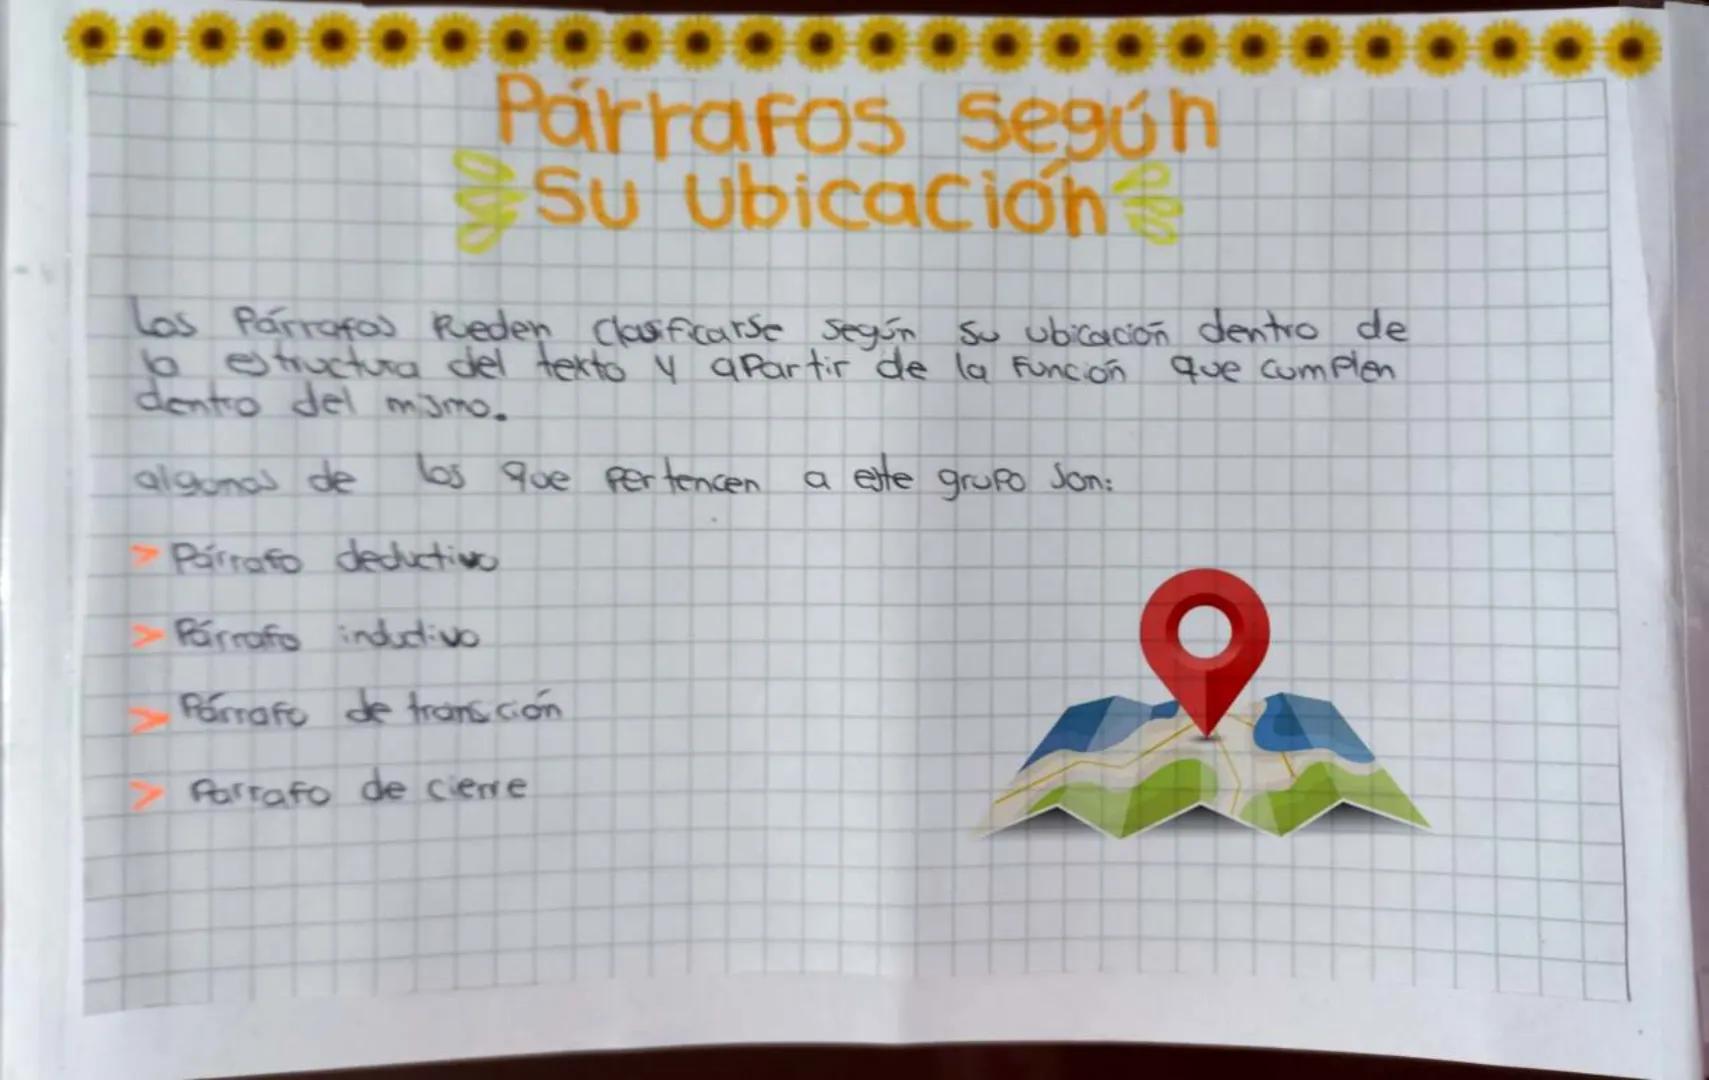 Párrafos según
su ubicación
Los Párrafos Pueden clasificarse según su ubicación dentro de
la estructura del texto y apartir de la función que cumplen
dentro del mismo.
algunos de los que pertencen a este grupo son:
> Párrafo deductivo
> Párrafo inductivo
> Párrafo de transción
> Parrafo de cierre